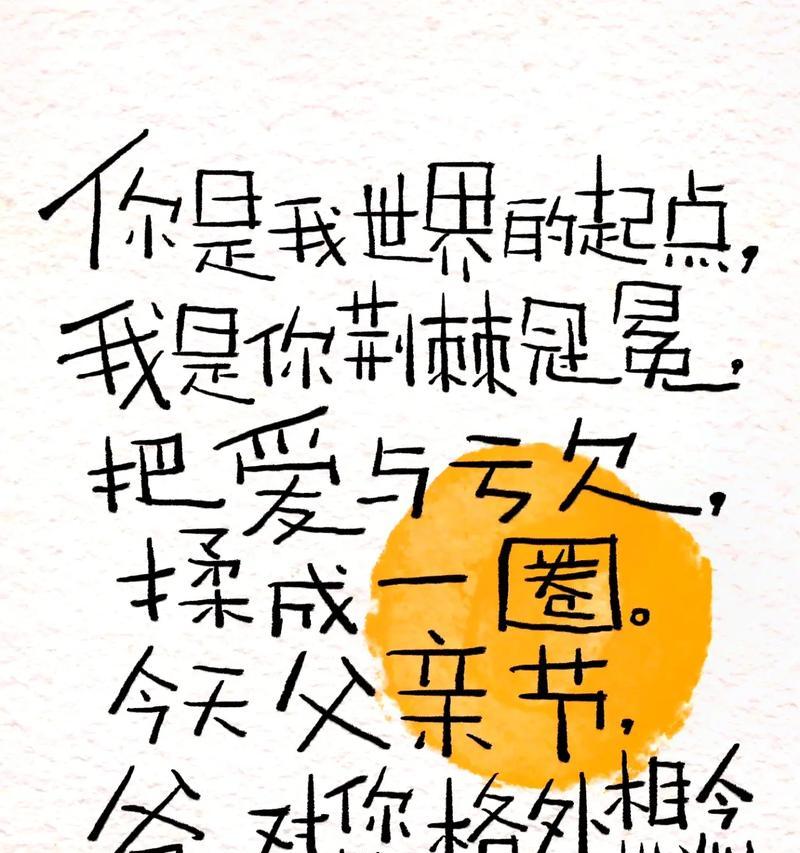 你是我世界的起点,
我是你荆棘冠冕,
把爱与亏欠,
揉成一圈。
今天父亲节,
爸 对你格外想念